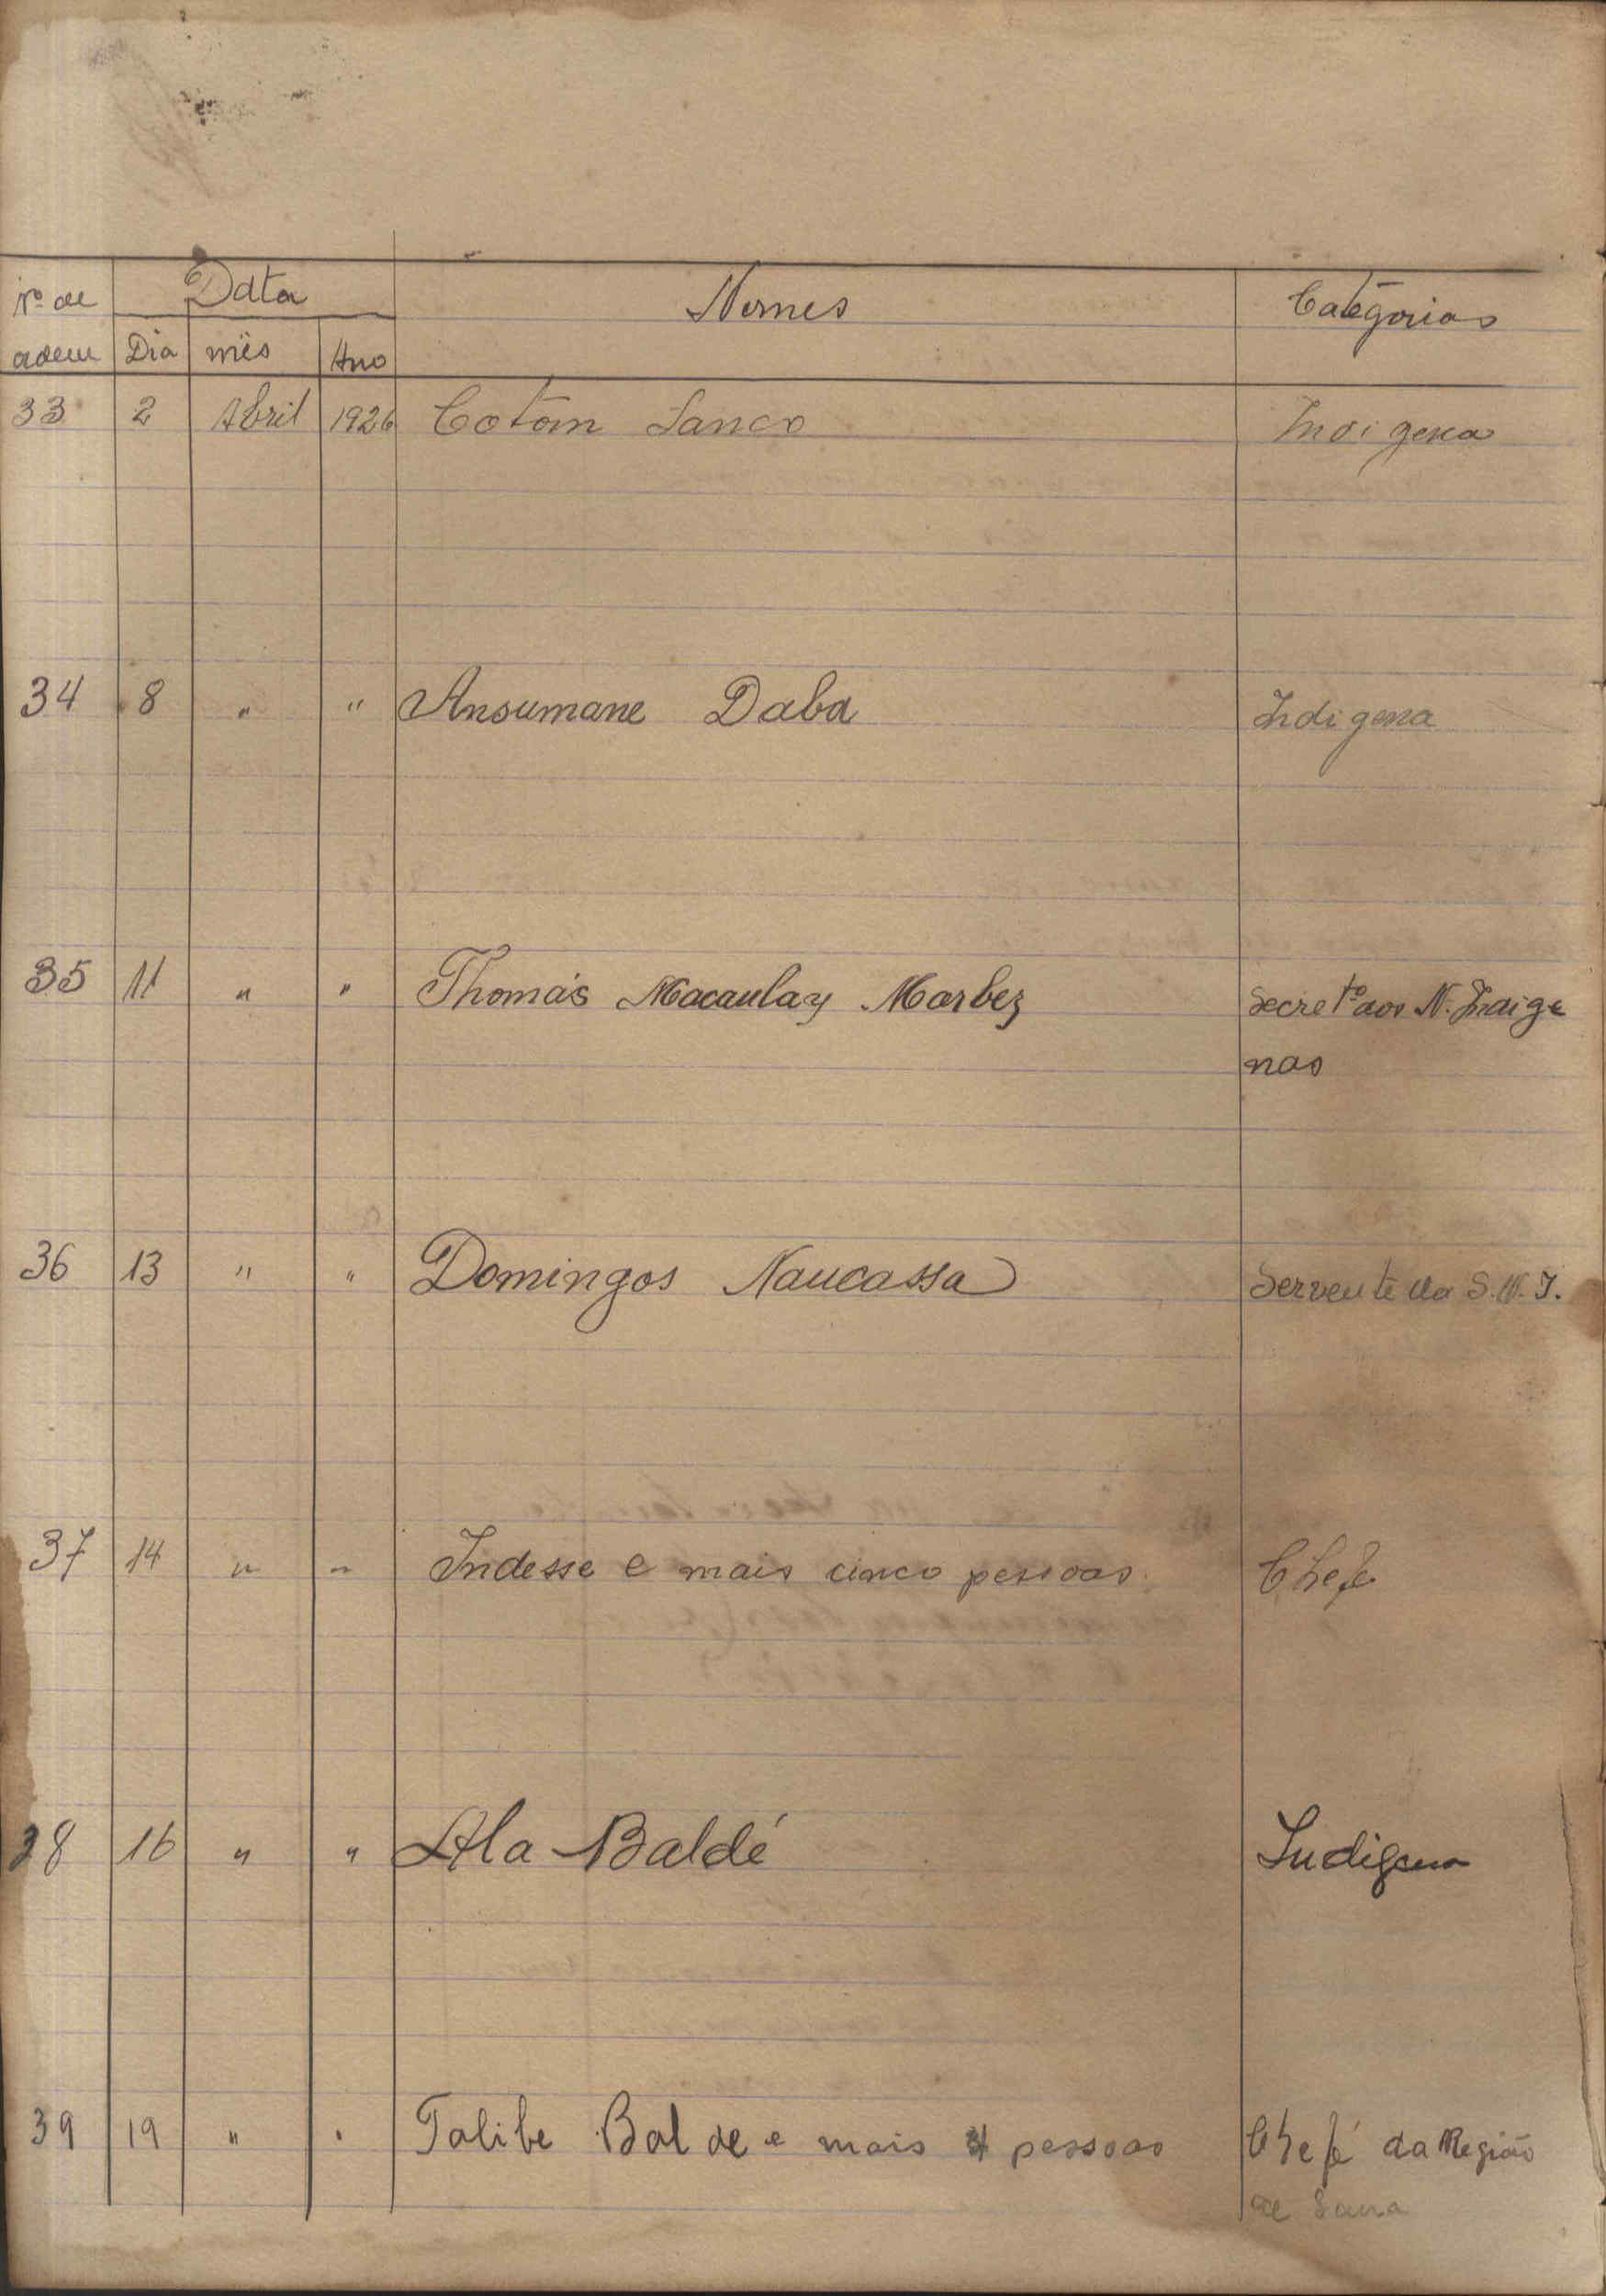 Nº de Data Nomes Categorias
ordem Dia mês Ano
33 2 Abril 1926 Cotom Sanco Indigena
34 8 " " Ansumane Daba Indigena
35 11 " " Thomás Macaulay Marbez Secretº dos N. Indige
nas
36 13 " " Domingos Naucassa Servente da S. N. I.
37 14 " " Indesse e mais cinco pessoas. Chefe
38 16 " " Ala Baldé Indigena
39 19 " " Talibe Balde e mais 4 pessoas Chefe da Região
de